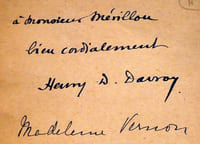 à monsieur Mérillon
bien cordialement
Henry D. Davray
Madeleine Vernon